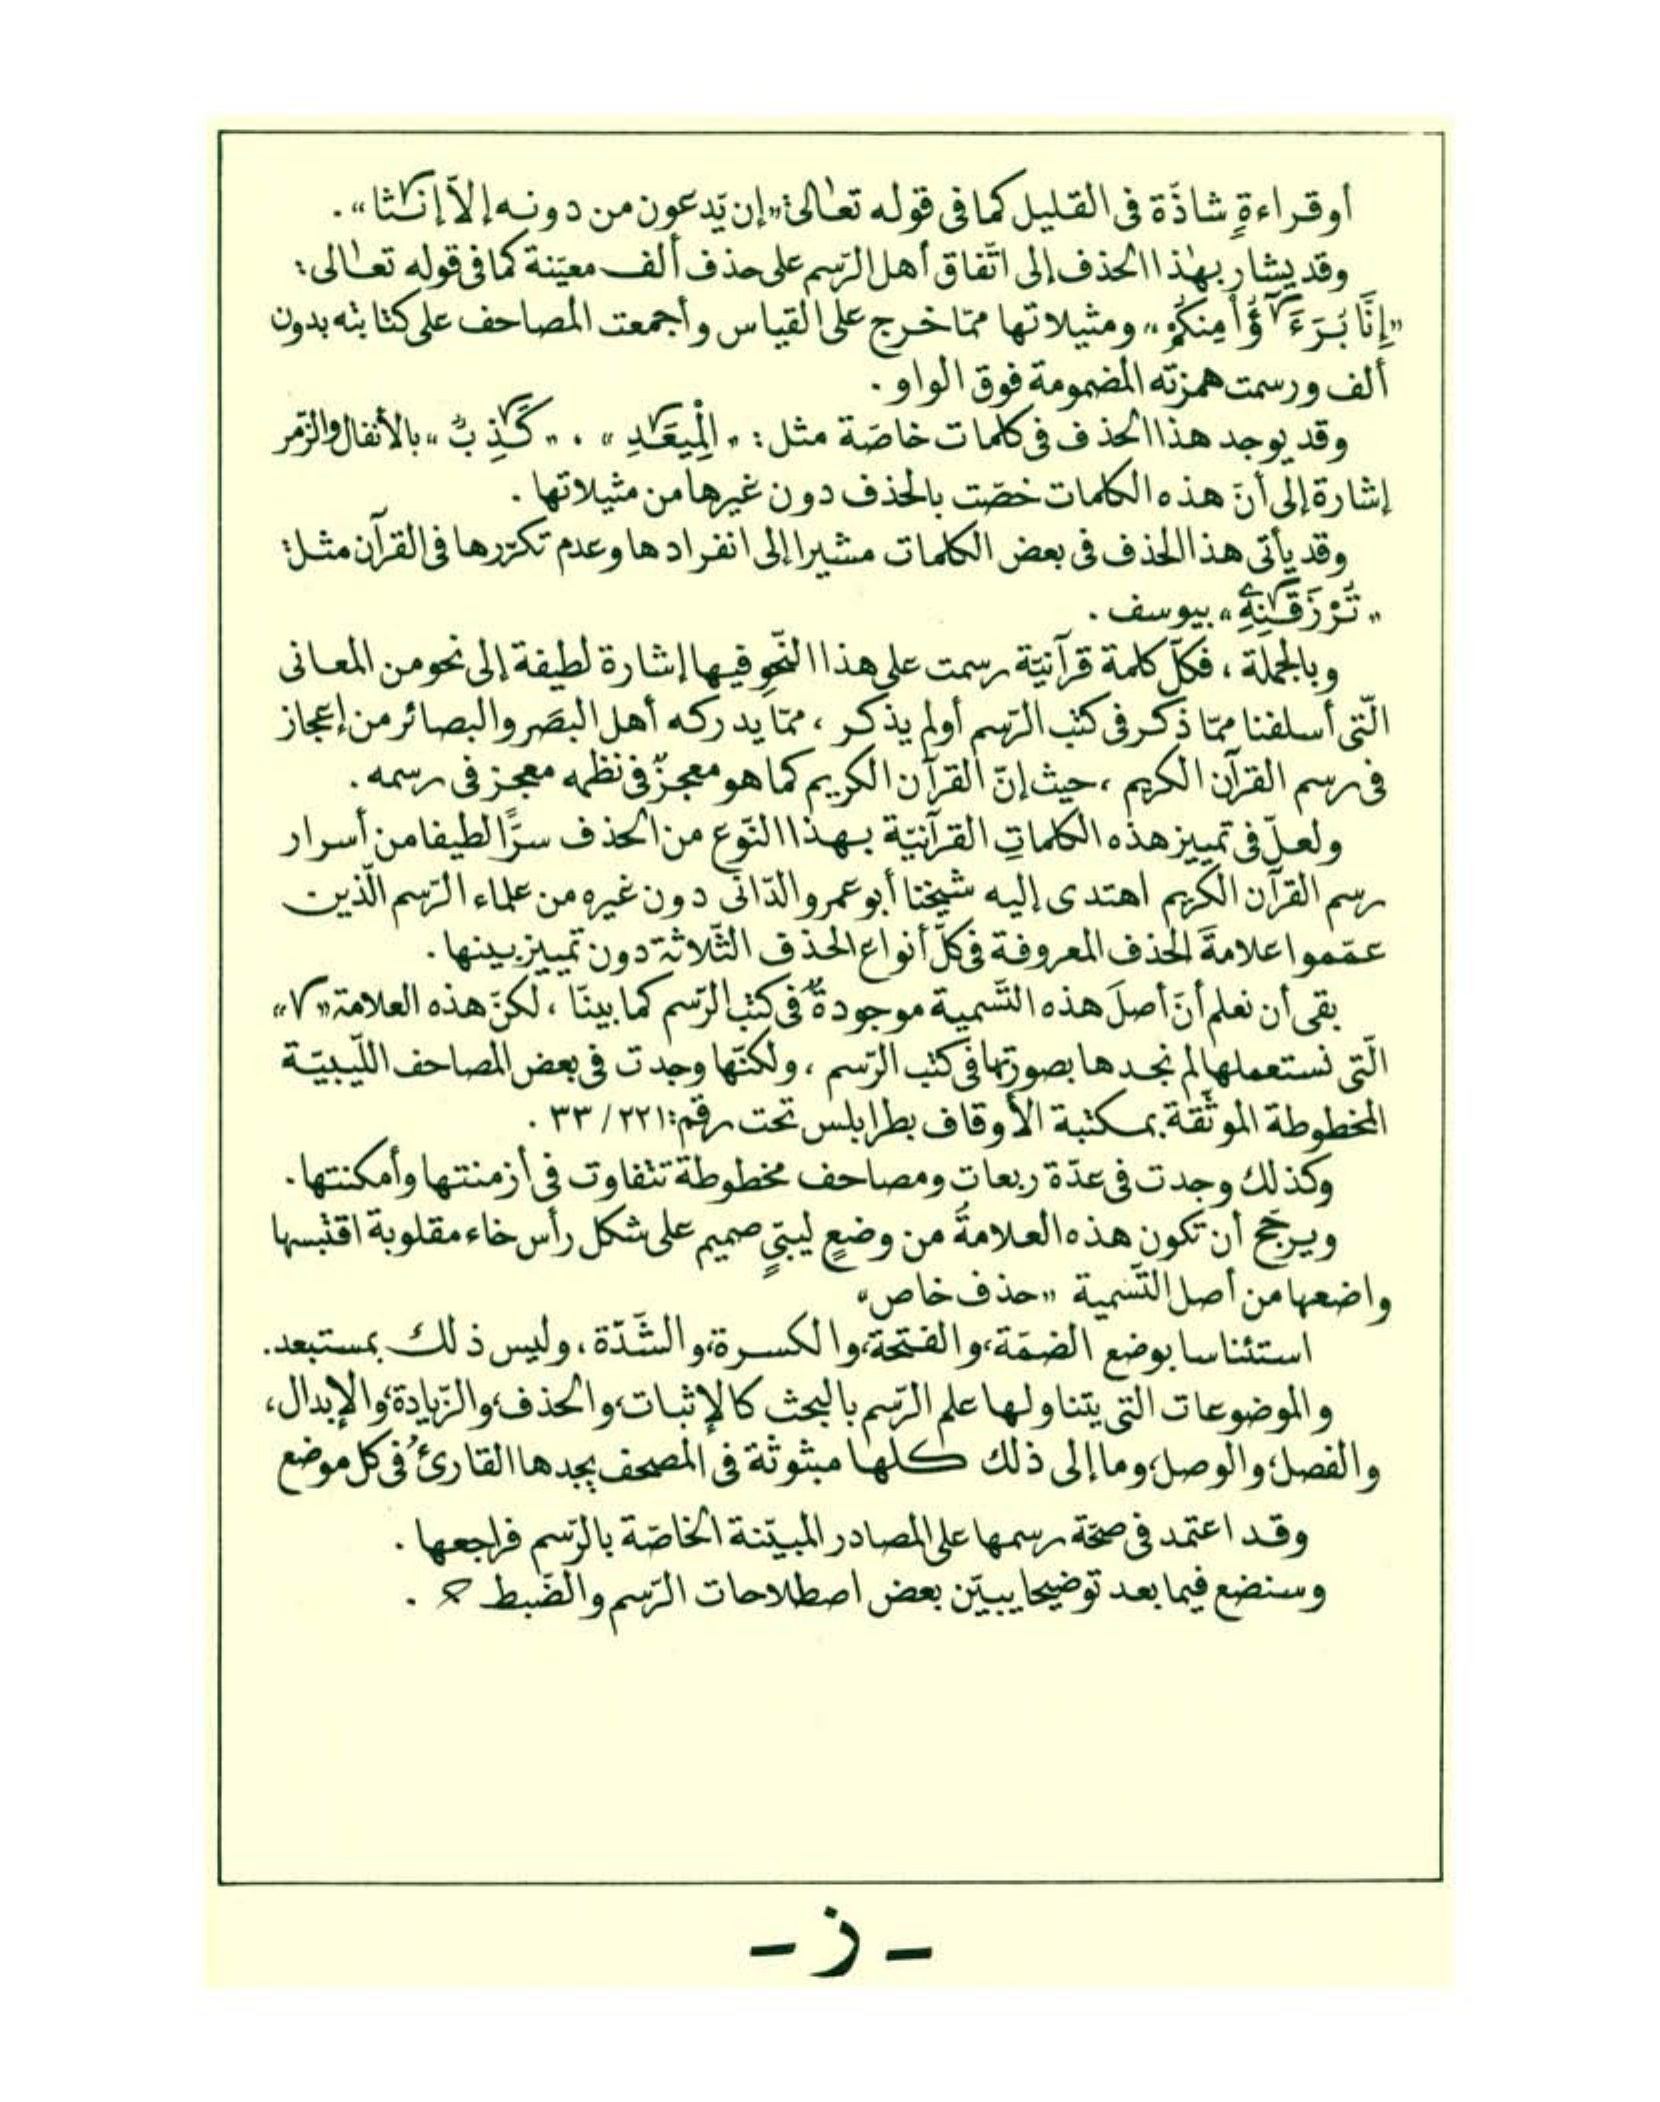 أو قراءةٍ شاذّة فى القليل كما فى قوله تعالى: «إن يّدعون من دونه إلاّ إنٰثا».
وقد يشار بهٰذا الحذف إلى اتّفاق أهل الرّسم على حذف ألف معيّنة كما فى قوله تعالى:
«إِنَّا بُرَءَٰٓؤُاْ مِنكُمْ» ومثيلاتها ممّا خرج على القياس وأجمعت المصاحف على كتابته بدون
ألف ورسمت همزته المضمومة فوق الواو.
وقد يوجد هذا الحذف فى كلمات خاصّة مثل: «الْمِيعَٰدِ»، «كَٰذِبٌ» بالأنفال والزّمر
إشارة إلى أنّ هذه الكلمات خصّت بالحذف دون غيرها من مثيلاتها.
وقد يأتى هذا الحذف فى بعض الكلمات مشيرا إلى انفرادها وعدم تكرّرها فى القرآن مثل:
«تُرْزَقَٰنِهِۦ» بيوسف.
وبالجملة، فكلّ كلمة قرآنيّة رسمت على هذا النّحو فيها إشارة لطيفة إلى نحو من المعانى
الّتى أسلفنا ممّا ذكر فى كتب الرّسم أو لم يذكر، ممّا يدركه أهل البصَر والبصائر من إعجاز
فى رسم القرآن الكريم، حيث إنّ القرآن الكريم كما هو معجزٌ فى نظمه معجز فى رسمه.
ولعلّ فى تمييز هذه الكلماتِ القرآنيّة بهذا النّوع من الحذف سرًّا لطيفا من أسرار
رسم القرآن الكريم اهتدى إليه شيخنا أبو عمرو الدّانى دون غيره من علماء الرّسم الّذين
عمّموا علامةَ الحذف المعروفة فى كلّ أنواع الحذف الثّلاثة دون تمييز بينها.
بقى أن نعلم أنّ أصلَ هذه التّسمية موجودةٌ فى كتب الرّسم كما بينّا، لكنّ هذه العلامة «٧»
الّتى نستعملها لم نجدها بصورتها فى كتب الرّسم، ولكنّها وجدت فى بعض المصاحف اللّيبيّة
المخطوطة الموثّقة بمكتبة الأوقاف بطرابلس تحت رقم: ٢٢١ / ٣٣.
وكذلك وجدت فى عدّة ربعات ومصاحف مخطوطة تتفاوت فى أزمنتها وأمكنتها.
ويرجّح أن تكون هذه العلامةُ من وضعٍ ليبيٍّ صميم على شكل رأس خاء مقلوبة اقتبسها
واضعها من أصل التّسمية «حذف خاص»
استئناسا بوضع الضمّة، والفتحة، والكسرة، والشّدّة، وليس ذلك بمستبعد.
والموضوعات التى يتناولها علم الرّسم بالبحث كالإثبات، والحذف، والزّيادة، والإبدال،
والفصل، والوصل، وما إلى ذلك كلها مبثوثة فى المصحف يجدها القارئُ فى كل موضع
وقد اعتمد فى صحّة رسمها على المصادر المبيّنة الخاصّة بالرّسم فراجعها.
وسنضع فيما بعد توضيحا يبيّن بعض اصطلاحات الرّسم والضّبط.
- ز -